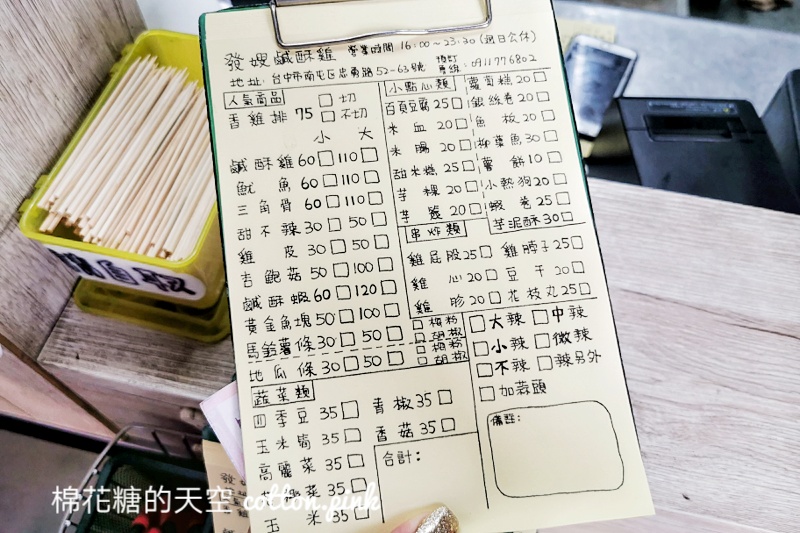 發嫂鹹酥雞 營業時間 16:00～23:30(週日公休)
地址:台中市南屯區忠勇路52-63號 預訂專線:0911776802
人氣商品
香雞排 75 □切 □不切
小 大
鹹酥雞 60□ 110□
魷魚 60□ 110□
三角骨 60□ 110□
甜不辣 30□ 50□
雞皮 30□ 50□
杏鮑菇 50□ 100□
鹹酥蝦 60□ 120□
黃金魚塊 50□ 100□
馬鈴薯條 30□ 50□ □梅粉 □胡椒
地瓜條 30□ 50□ □梅粉 □胡椒
蔬菜類
四季豆 35□
玉米筍 35□
高麗菜 35□
菜 35□
玉米 35□
青椒 35□
香菇 35□
合計:
小點心類
百頁豆腐 25□
米血 20□
米腸 20□
甜米糕 25□
芋粿 20□
芋籤 20□
蘿蔔糕 20□
銀絲卷 20□
魚板 20□
柳葉魚 30□
薯餅 10□
小熱狗 20□
蝦卷 25□
芋泥酥 30□
串炸類
雞屁股 25□
雞心 20□
雞胗 20□
雞脖子 25□
豆干 20□
花枝丸 25□
□大辣 □中辣
□小辣 □微辣
□不辣 □辣另外
□加蒜頭
備註:
棉花糖的天空 cotton.pink